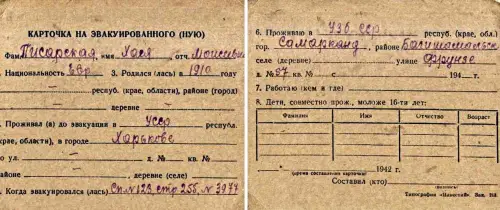 КАРТОЧКА НА ЭВАКУИРОВАННОГО (НУЮ)
Фам Писарская имя Хася отч. Моисеевн
. Национальность Евр 3. Родился (лась) в 1910 году
— респуб. (края, области), района (город)
— деревне —
. Проживал (а) до эвакуации в УССР республ.
(крае, области), в городе Харькове
по ул. — д. № кв. №
районе — деревне (селе)
. Когда эвакуировался (лась) Сп. N 123, стр. 255, N 3977
6. Проживаю в Узб. ССР респуб. (края, обл.)
гор. Самарканд, районе Багишамальск
селе (деревне) улице Фрунзе
д. № 97 кв. № с 194 г.
7. Работаю (кем и где)
8. Дети, совместно прож., моложе 16-ти лет:
Фамилия Имя Отчество Возраст
1942 г.
(время составления карточки)
Составил (кто)
(подпись)
Типография